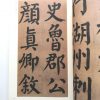 行湖州刺
史魯郡公
顏真卿敘